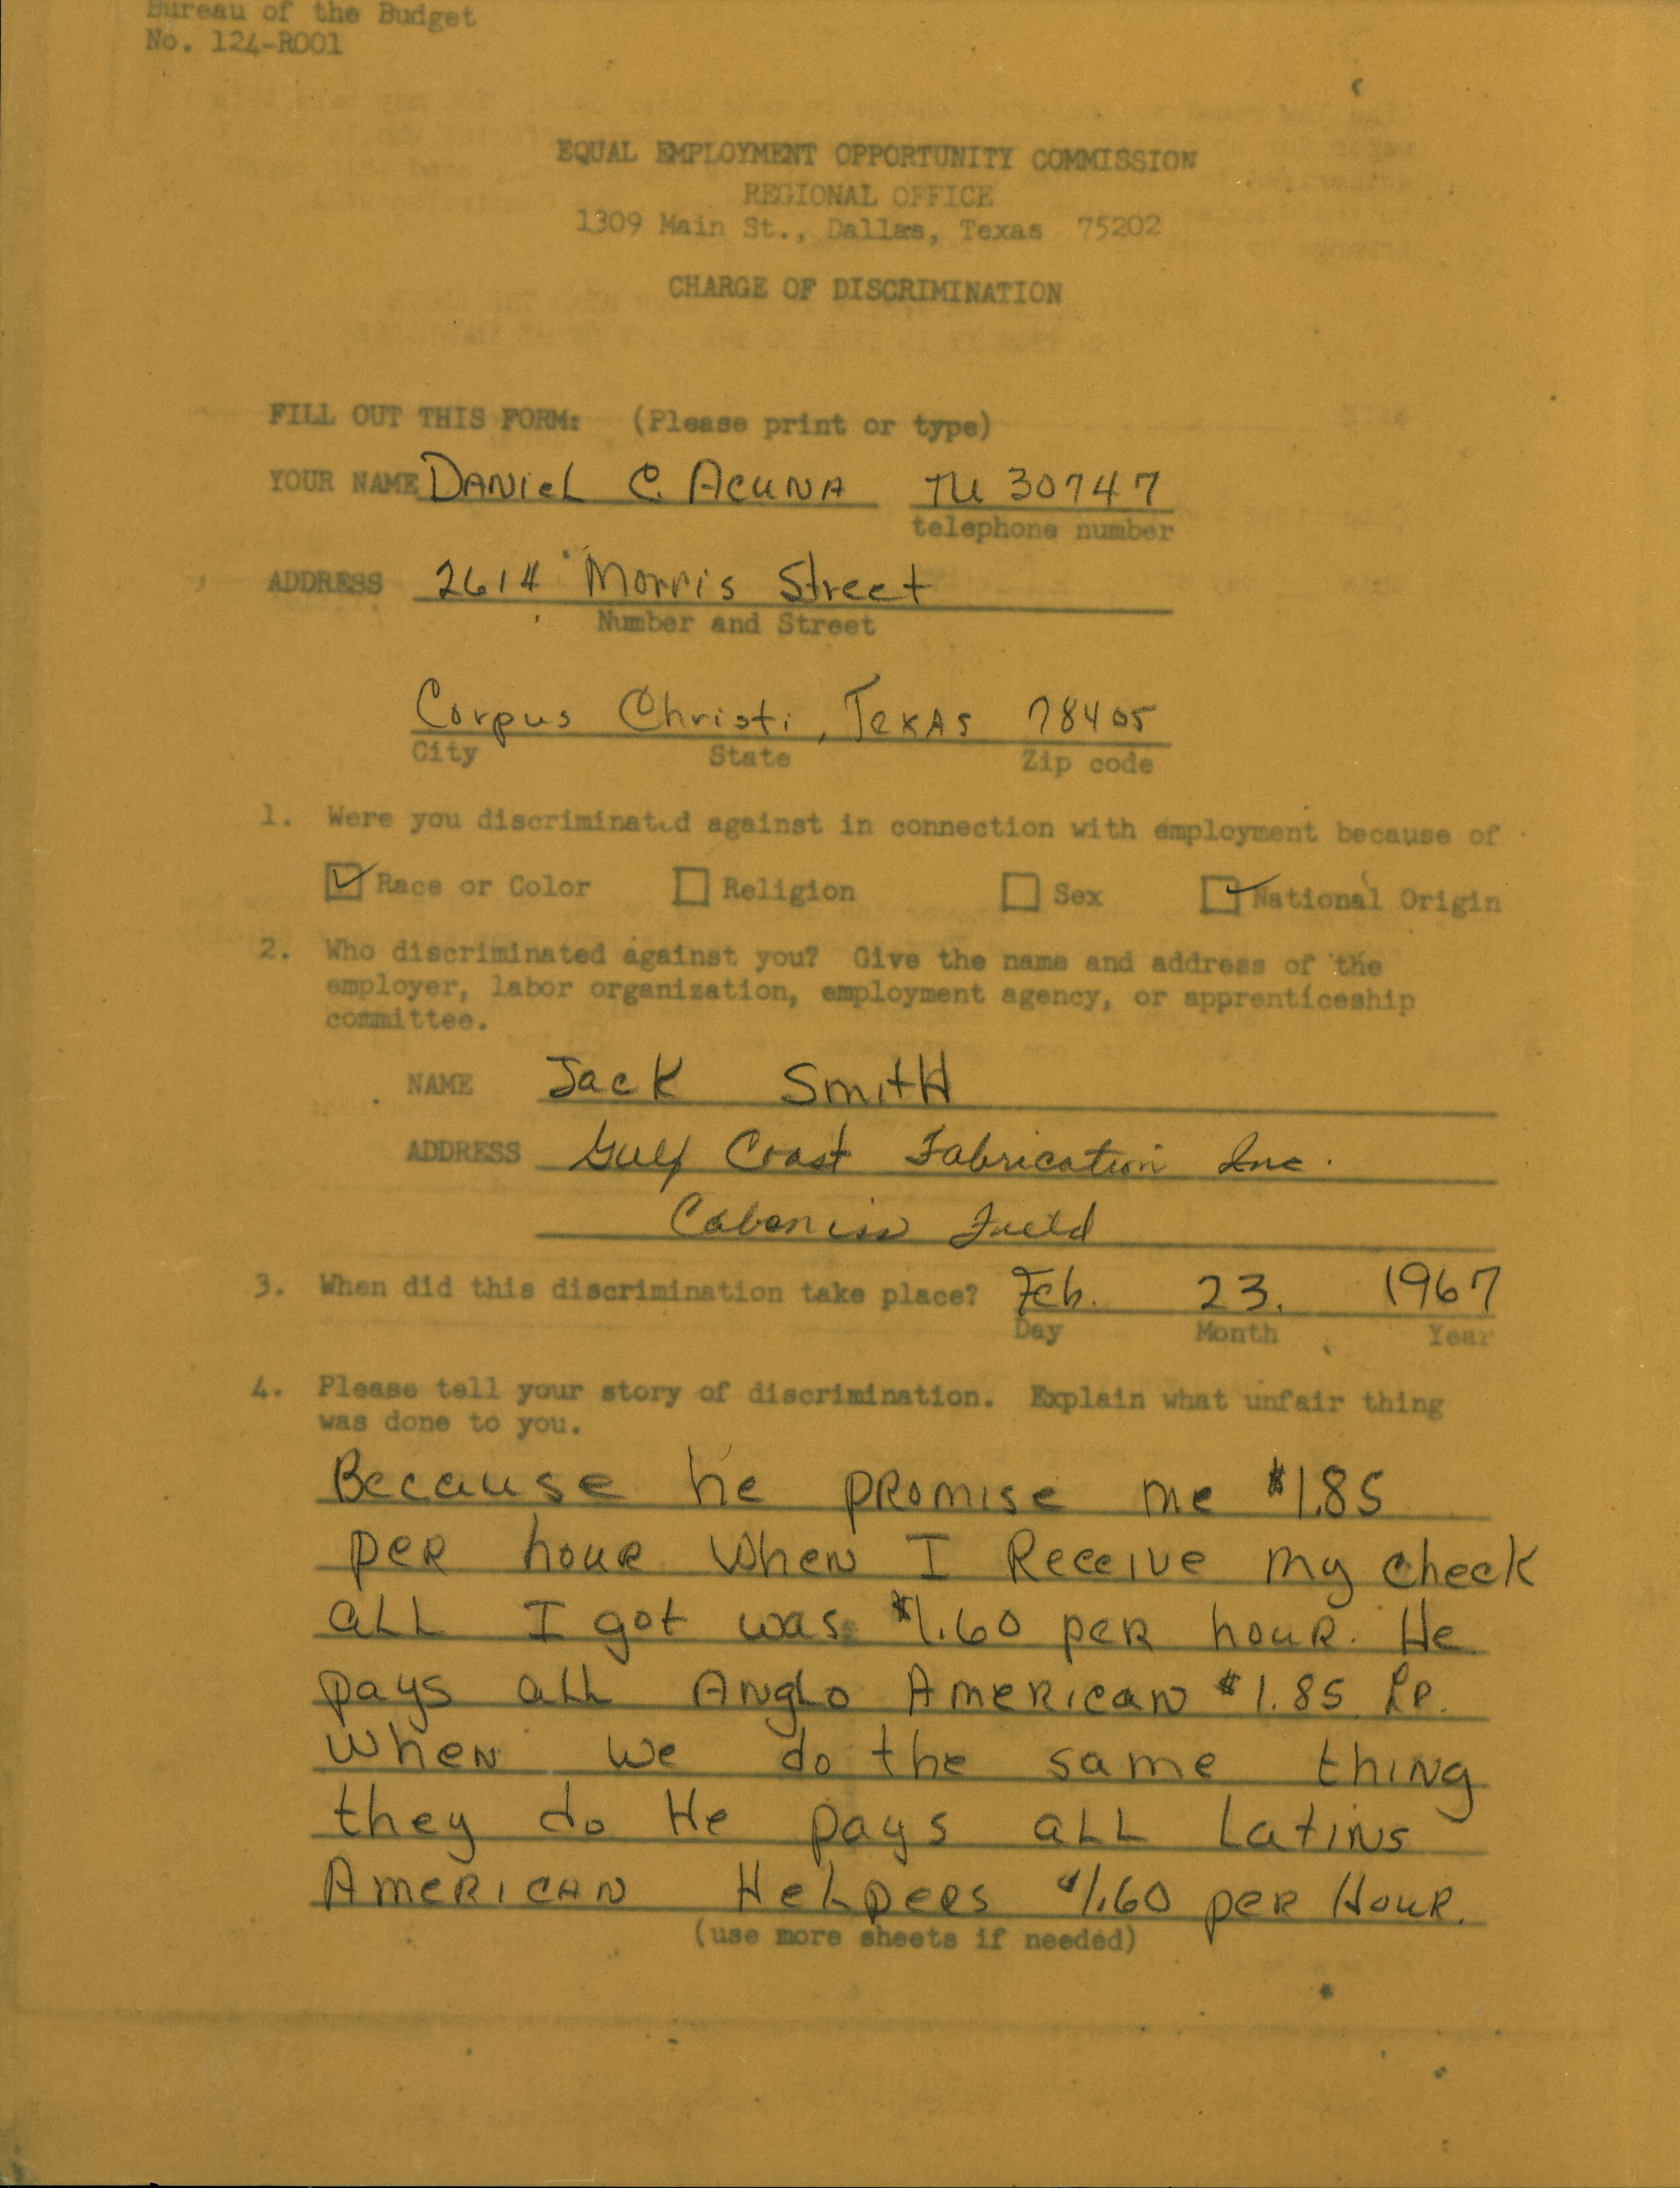 Bureau of the Budget
No. 124-R001
EQUAL EMPLOYMENT OPPORTUNITY COMMISSION
REGIONAL OFFICE
1309 Main St., Dallas, Texas 75202
CHARGE OF DISCRIMINATION
FILL OUT THIS FORM: (Please print or type)
YOUR NAME DANIEL C. ACUNA TU 30747
telephone number
ADDRESS 2614 Morris Street
Number and Street
Corpus Christi, TEXAS 78405
City State Zip code
1. Were you discriminated against in connection with employment because of
Race or Color Religion Sex National Origin
2. Who discriminated against you? Give the name and address of the
employer, labor organization, employment agency, or apprenticeship
committee.
NAME Jack Smith
ADDRESS Gulf Coast Fabrication Inc.
Cabaniss Field
3. When did this discrimination take place? Feb. 23. 1967
Day Month Year
4. Please tell your story of discrimination. Explain what unfair thing
was done to you.
Because he promise me $1.85
per hour when I Receive my check
all I got was $1.60 per hour. He
pays all Anglo American $1.85
when we do the same thing
they do He pays all Latins
American Helpers $1.60 per Hour.
(use more sheets if needed)